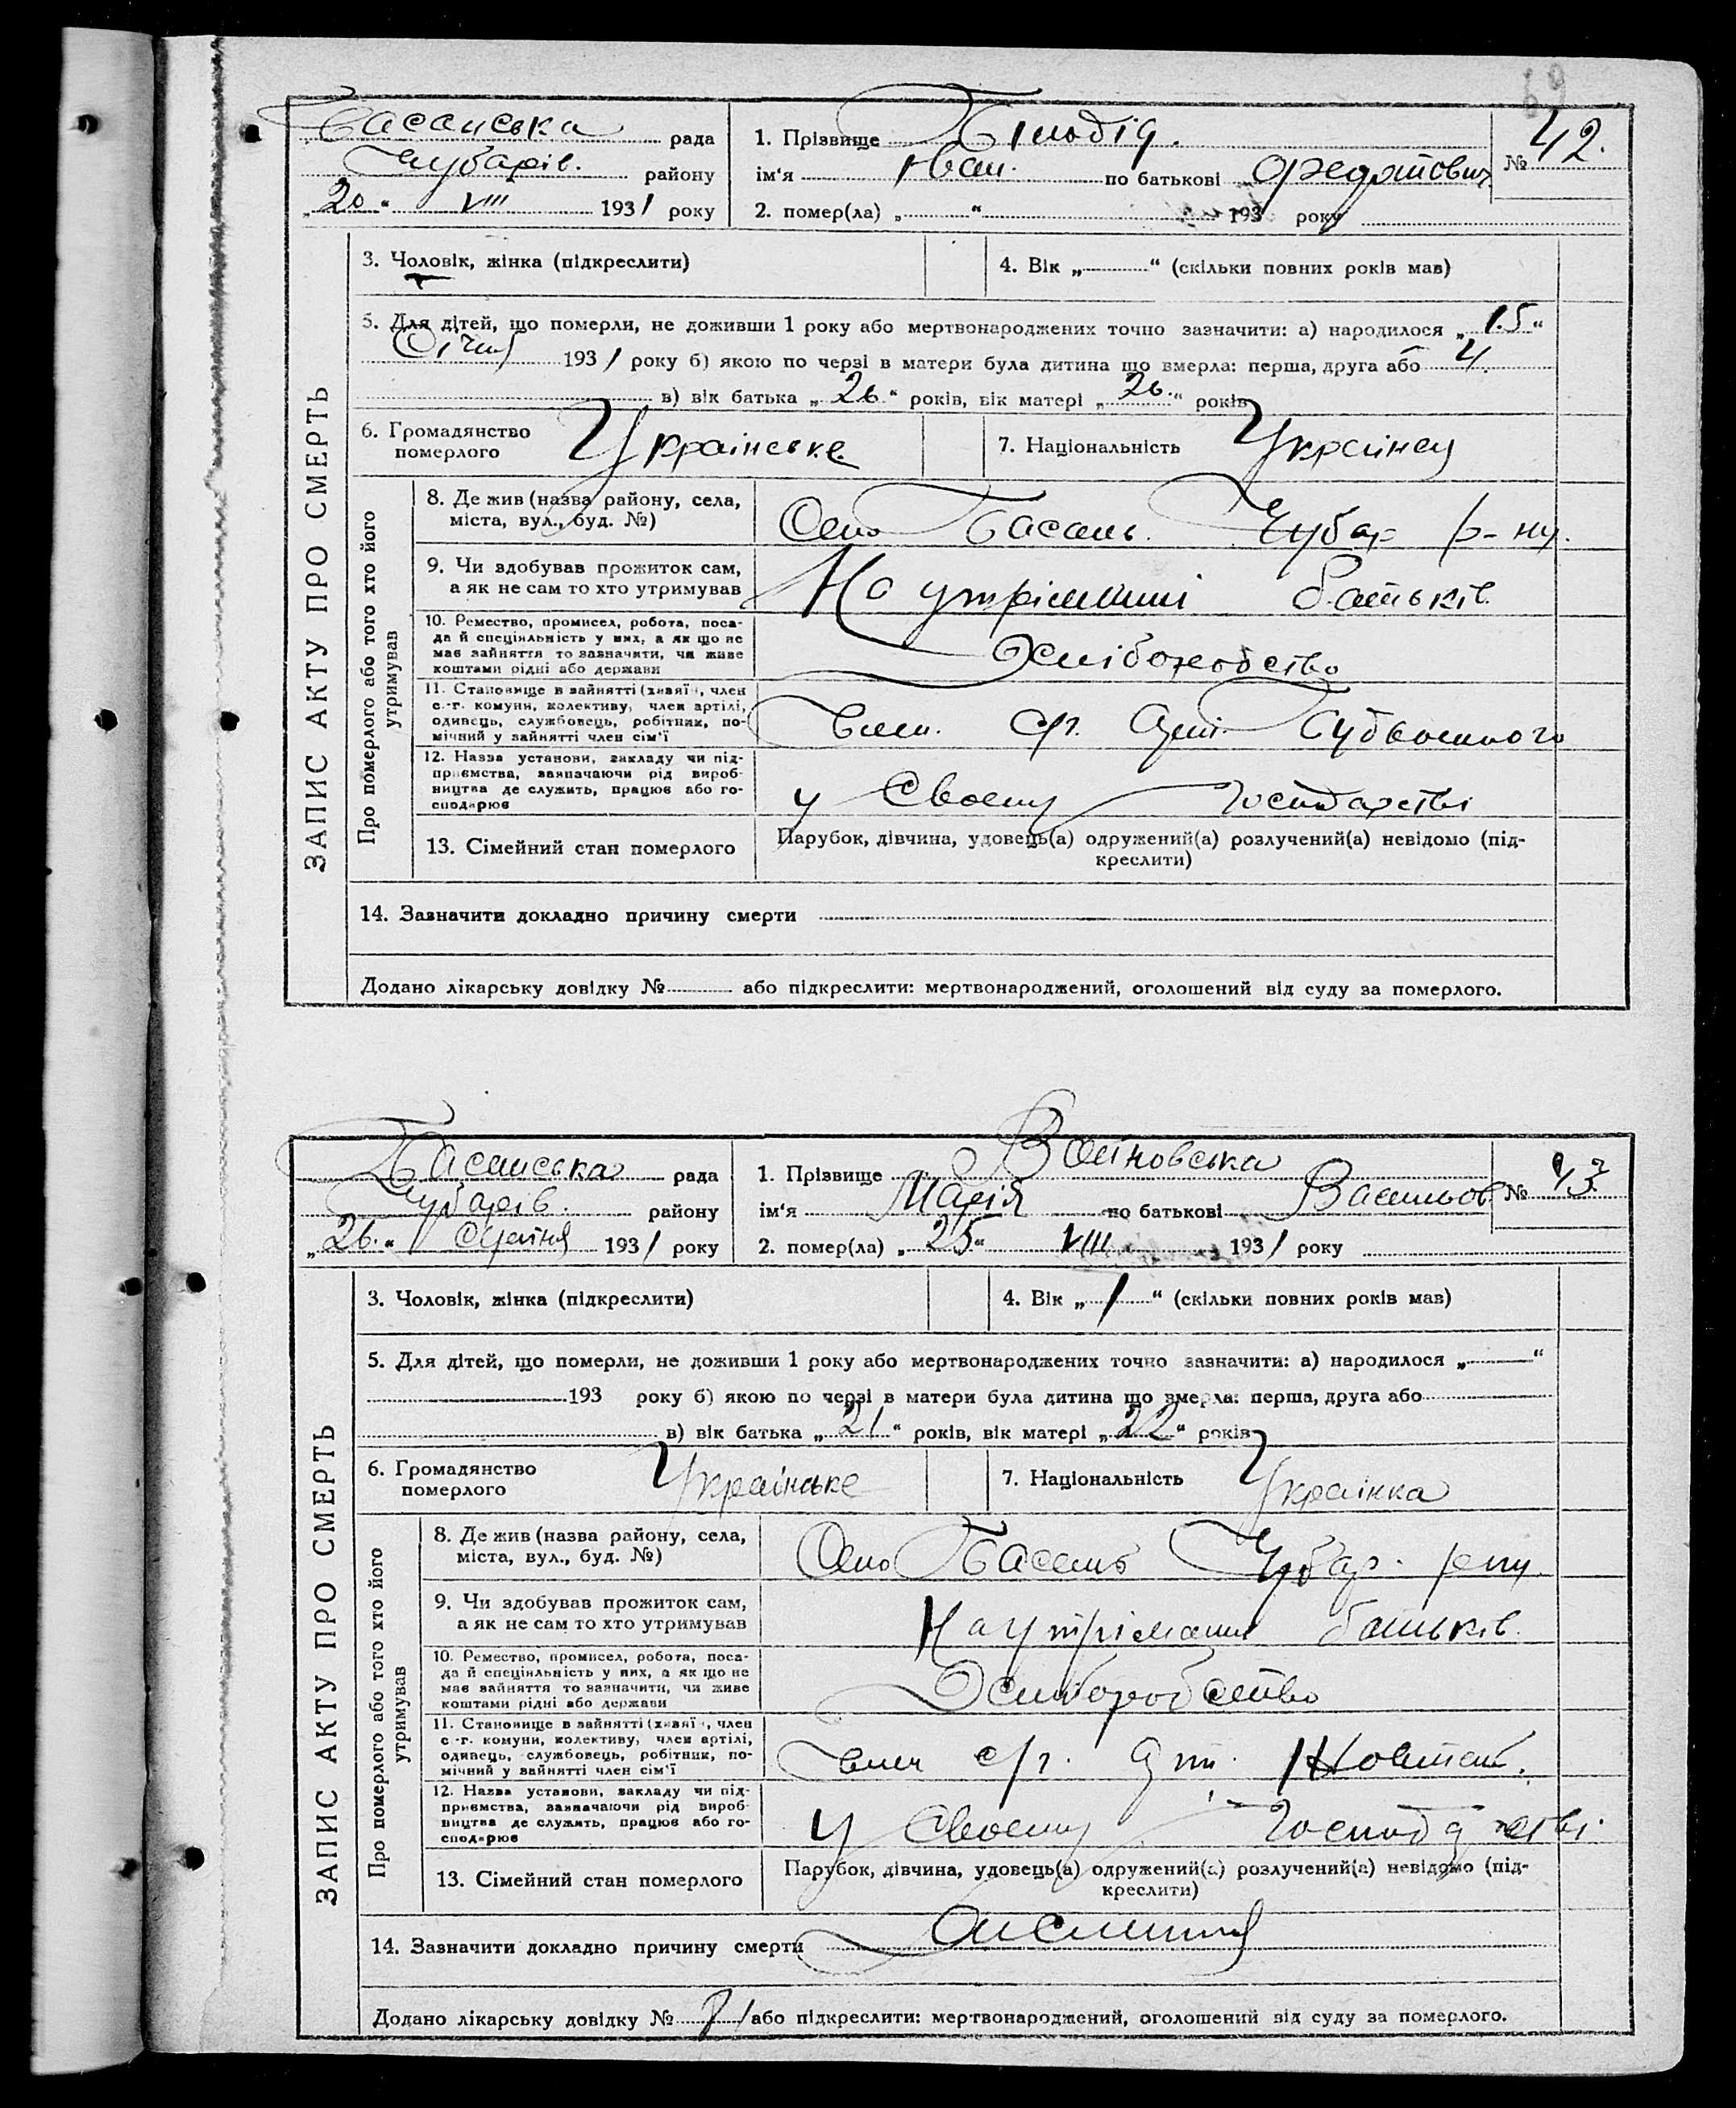 69
Басанська рада
Чубарів. району
„20“ VIII 1931 року
1. Прізвище Білодід.
ім‘я Іван. по батькові Федотович
№ 42.
2. помер(ла) „ “ 193 року
ЗАПИС АКТУ ПРО СМЕРТЬ
3. Чоловік, жінка (підкреслити)
4. Вік „ “ (скільки повних років мав)
5. Для дітей, що померли, не доживши 1 року або мертвонароджених точно зазначити: а) народилося „15“
Січня 1931 року б) якою по черзі в матери була дитина що вмерла: перша, друга або 4.
в) вік батька „26“ років, вік матері „26.“ років
6. Громадянство
померлого
Українське
7. Національність Українец
Про померлого або того хто його
утримував
8. Де жив (назва району, села,
міста, вул., буд. №)
Село Басань. Чубар р-ну.
9. Чи здобував прожиток сам,
а як не сам то хто утримував
На утріманні батьків
10. Ремество, промисел, робота, поса-
да й спеціяльність у них, а як що не
має зайняття то зазначити, чи живе
коштами рідні або держави
Хліборобство
11. Становище в зайнятті (хазяїн, член
с.-г. комуни, колективу, член артілі,
одинець, службовець, робітник, по-
мічний у зайнятті член сім‘ї
Член. с/г. Арт.
12. Назва установи, закладу чи під-
приємства, зазначаючи рід вироб-
ництва де служить, працює або го-
сподарює
у Своєму господарстві
13. Сімейний стан померлого
Парубок, дівчина, удовець(а) одружений(а) розлучений(а) невідомо (під-
креслити)
14. Зазначити докладно причину смерти
Додано лікарську довідку № або підкреслити: мертвонароджений, оголошений від суду за померлого.
Басанська рада
Чубарів. району
„26.“ серпня 1931 року
1. Прізвище Войновська
ім‘я Марія по батькові Васильов
№ 43
2. помер(ла) „25“ VIII 1931 року
ЗАПИС АКТУ ПРО СМЕРТЬ
3. Чоловік, жінка (підкреслити)
4. Вік „1“ (скільки повних років мав)
5. Для дітей, що померли, не доживши 1 року або мертвонароджених точно зазначити: а) народилося „ “
193 року б) якою по черзі в матери була дитина що вмерла: перша, друга або
в) вік батька „21“ років, вік матері „22“ років
6. Громадянство
померлого
Українське
7. Національність Українка
Про померлого або того хто його
утримував
8. Де жив (назва району, села,
міста, вул., буд. №)
Село Басань Чубар. рену.
9. Чи здобував прожиток сам,
а як не сам то хто утримував
На утріманні батьків.
10. Ремество, промисел, робота, поса-
да й спеціяльність у них, а як що не
має зайняття то зазначити, чи живе
коштами рідні або держави
Хліборобство
11. Становище в зайнятті (хазяїн, член
с.-г. комуни, колективу, член артілі,
одинець, службовець, робітник, по-
мічний у зайнятті член сім‘ї
Член с/г. Арт.
12. Назва установи, закладу чи під-
приємства, зазначаючи рід вироб-
ництва де служить, працює або го-
сподарює
у Своєму господарстві.
13. Сімейний стан померлого
Парубок, дівчина, удовець(а) одружений(а) розлучений(а) невідомо (під-
креслити)
14. Зазначити докладно причину смерти
Додано лікарську довідку № або підкреслити: мертвонароджений, оголошений від суду за померлого.